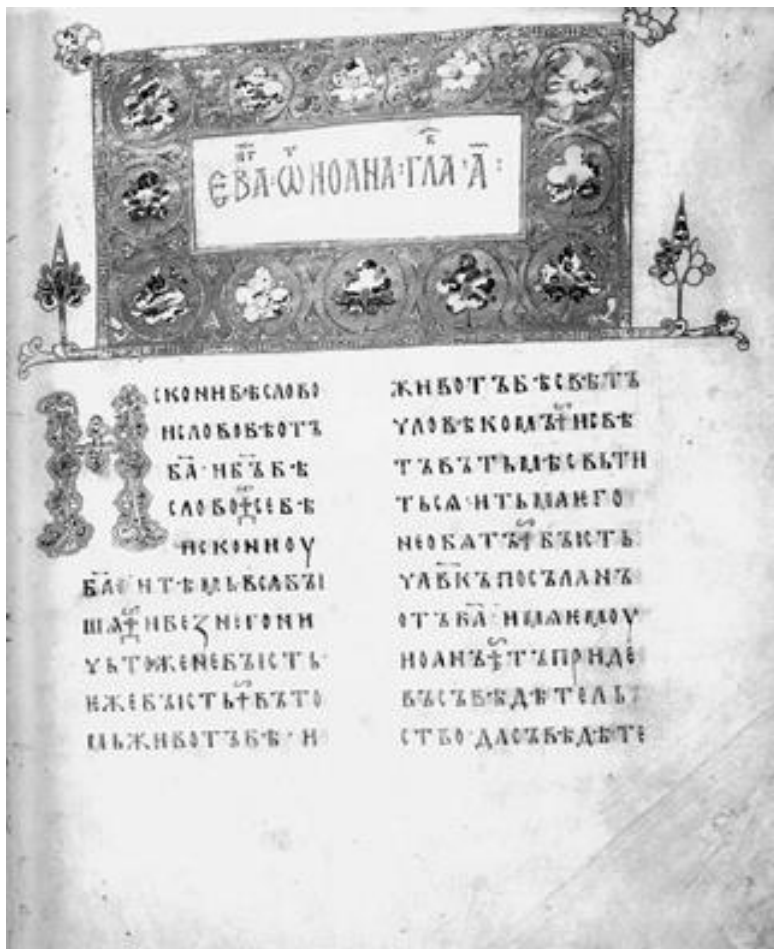 ЕВА҃·Ѿ ИОАНА·ГЛА·А҃:
ИСКОНИБѢСЛОВО
ИСЛОВОБѢОТЪ
БА҃·ИБЪ҃БѢ
СЛОВО·СЕБѢ
ИСКОНИОУ
БА҃·И ТѢМЬВСѦБЪІ
ШѦ·ИБЕЗНІЕГОНИ
ЧЬТОЖЕНЕБЪІСТЬ·
ИЖЕБЪІСТЬ·ВЪТО
МЬЖИВОТЪБѢ·И
ЖИВОТЪБѢСВѢТЪ
ЧЛОВѢКОМЪ·ИСВѢ
ТЪВЪТЬМѢСВЬТИ
ТЬСѦ·ИТЬМАІЕГО
НЕОБѦТЪ·БЪІСТЬ
ЧЛВ҃КЪПОСЪЛАНЪ
ОТЪБА҃·ИМѦІЕМОУ
ИОАНЪ·ТЪПРИДЕ
ВЪСЪВѢДѢТЕЛЬ
СТВО·ДАСЪВѢДѢТЕ